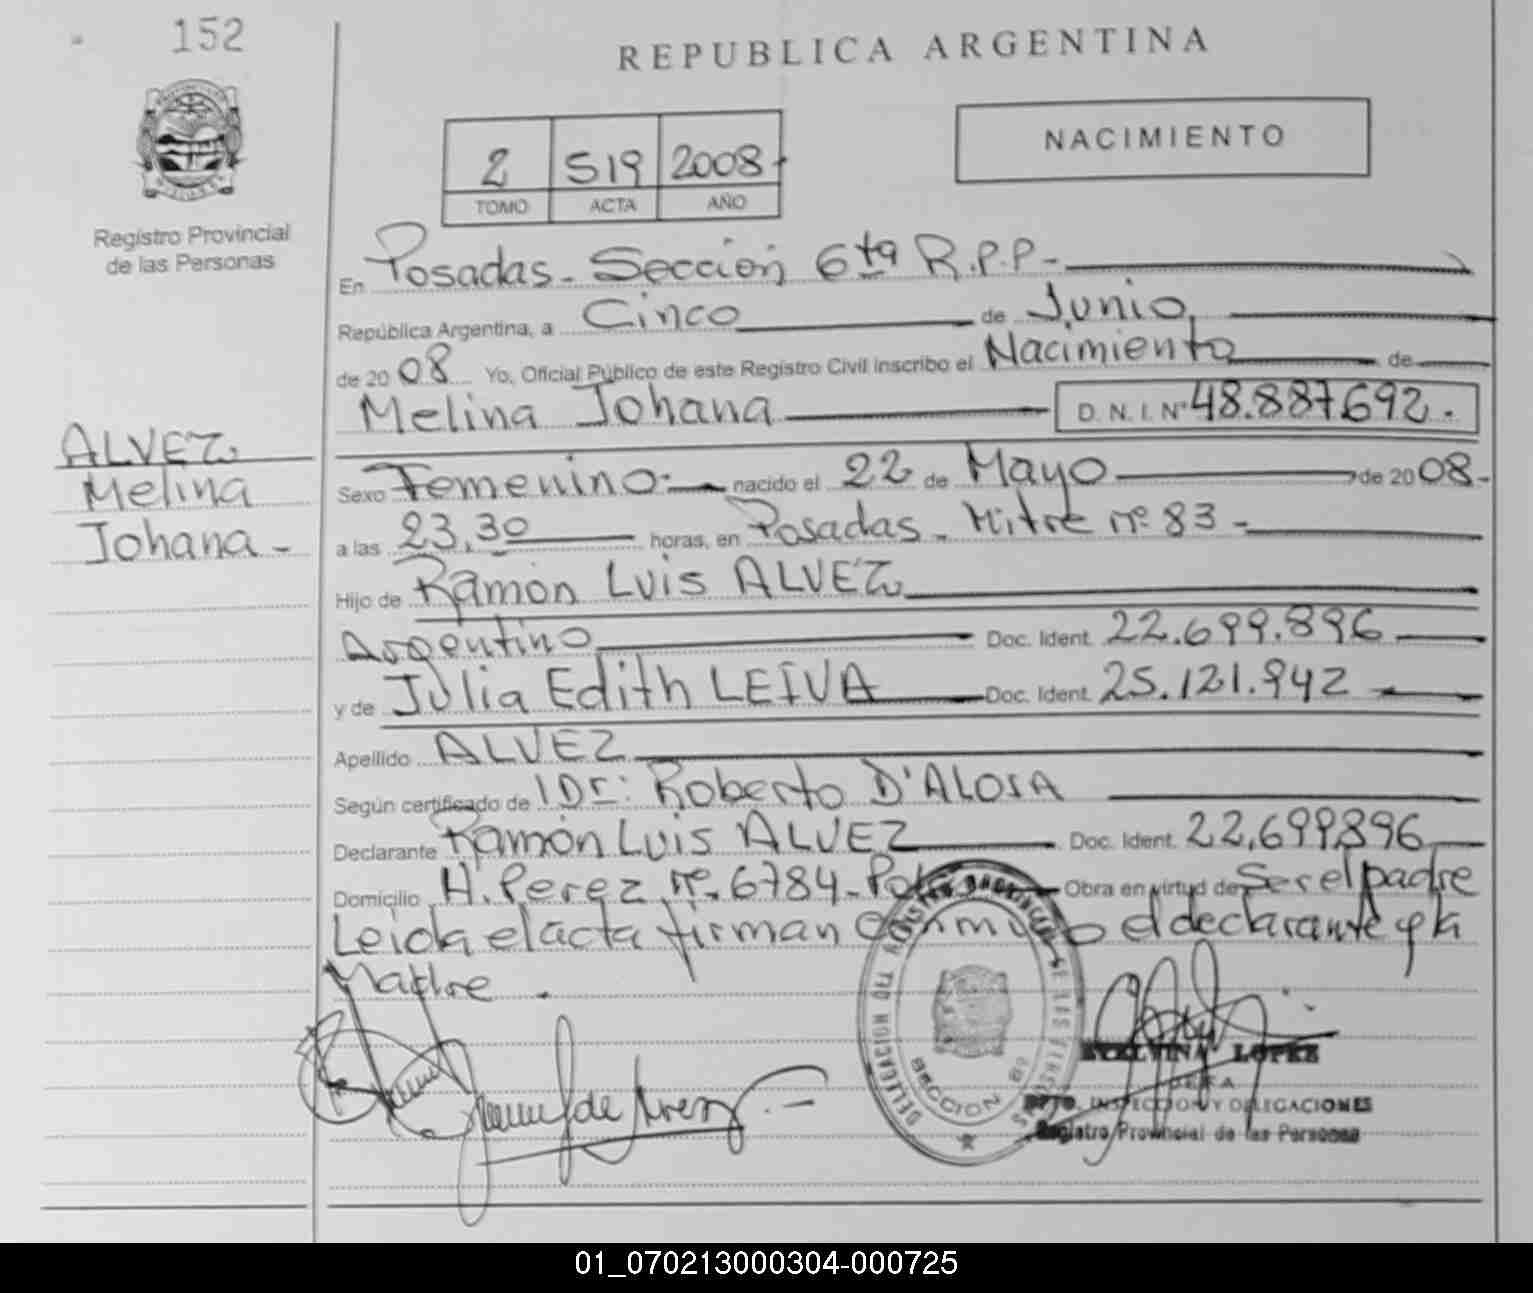 152
REPUBLICA ARGENTINA
NACIMIENTO
2 519 2008-
TOMO ACTA AÑO
Registro Provincial
de las Personas
En Posadas - Sección 6ta R.P.P-
República Argentina, a Cinco de Junio
de 2008 Yo, Oficial Público de este Registro Civil inscribo el Nacimiento de
Melina Johana D. N. I. Nº 48.887.692.
ALVEZ
Melina
Johana -
Sexo Femenino.- nacido el 22 de Mayo de 2008-
a las 23,30 horas, en Posadas - Mitre nº 83 -
Hijo de Ramón Luis ALVEZ
Argentino Doc. Ident. 22.699.896
y de Julia Edith LEIVA Doc. Ident. 25.121.942
Apellido ALVEZ
Según certificado de Dr: Roberto D'ALOSA
Declarante Ramón Luis ALVEZ Doc. Ident. 22.699.896
Domicilio H. Perez nº 6784 - Obra en virtud de Ser el padre
Leida el acta firman el declarante y la
Madre.
DELEGACION DEL REGISTRO PROVINCIAL DE LAS PERSONAS
SECCION 6ª
LOPEZ
JEFA
DPTO. INSPECCION Y DELEGACIONES
Registro Provincial de las Personas
01_070213000304-000725